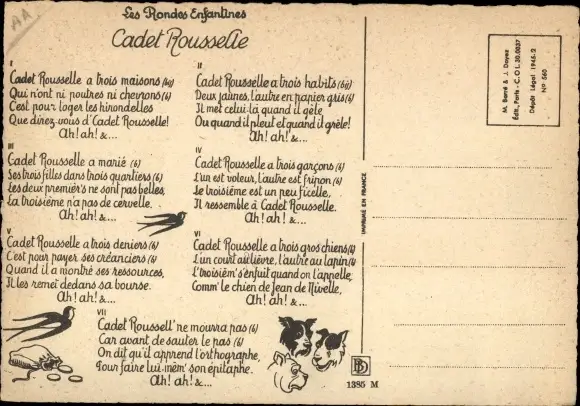 AA
Les Rondes Enfantines
Cadet Rousselle
I
Cadet Rousselle a trois maisons (bis)
Qui n'ont ni poutres ni chevrons (b)
C'est pour loger les hirondelles
Que direz-vous d'Cadet Rousselle!
Ah! ah! &...
II
Cadet Rousselle a trois habits (bis)
Deux jaunes, l'autre en papier gris (b)
Il met celui-là quand il gèle
Ou quand il pleut et quand il grèle!
Ah! ah! &...
III
Cadet Rousselle a marié (b)
Ses trois filles dans trois quartiers (b)
Les deux premièr's ne sont pas belles,
La troisième n'a pas de cervelle.
Ah! ah! &...
IV
Cadet Rousselle a trois garçons (b)
L'un est voleur, l'autre est fripon (b)
Le troisième est un peu ficelle,
Il ressemble à Cadet Rousselle.
Ah! ah! &...
V
Cadet Rousselle a trois deniers (b)
C'est pour payer ses créanciers (b)
Quand il a montré ses ressources,
Il les remet dedans sa bourse.
Ah! ah! &...
VI
Cadet Rousselle a trois gros chiens (b)
L'un court au lièvre, l'autre au lapin (b)
L'troisièm' s'enfuit quand on l'appelle,
Comm' le chien de Jean de Nivelle,
Ah! ah! &...
VII
Cadet Roussell' ne mourra pas (b)
Car avant de sauter le pas (b)
On dit qu'il apprend l'orthographe,
Pour faire lui-mêm' son épitaphe.
Ah! ah! &...
IMPRIMÉ EN FRANCE
M. Barré & J. Dayez
Édit., Paris - C.O.L. 30.0037
Dépôt Légal 1946-2
No 560
BD
1385 M